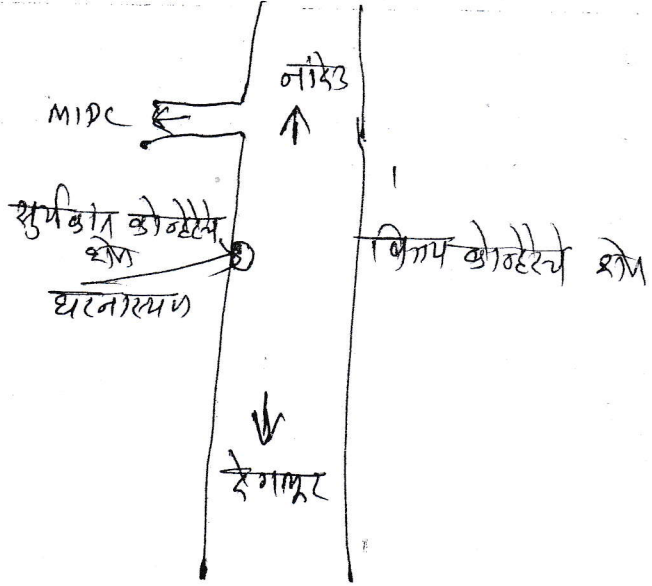 नांदेड
MIDC
सुर्यकांत कोन्हेरेचे
शेत
घटनास्थळ
विजय कोन्हेरेचे शेत
देगलूर